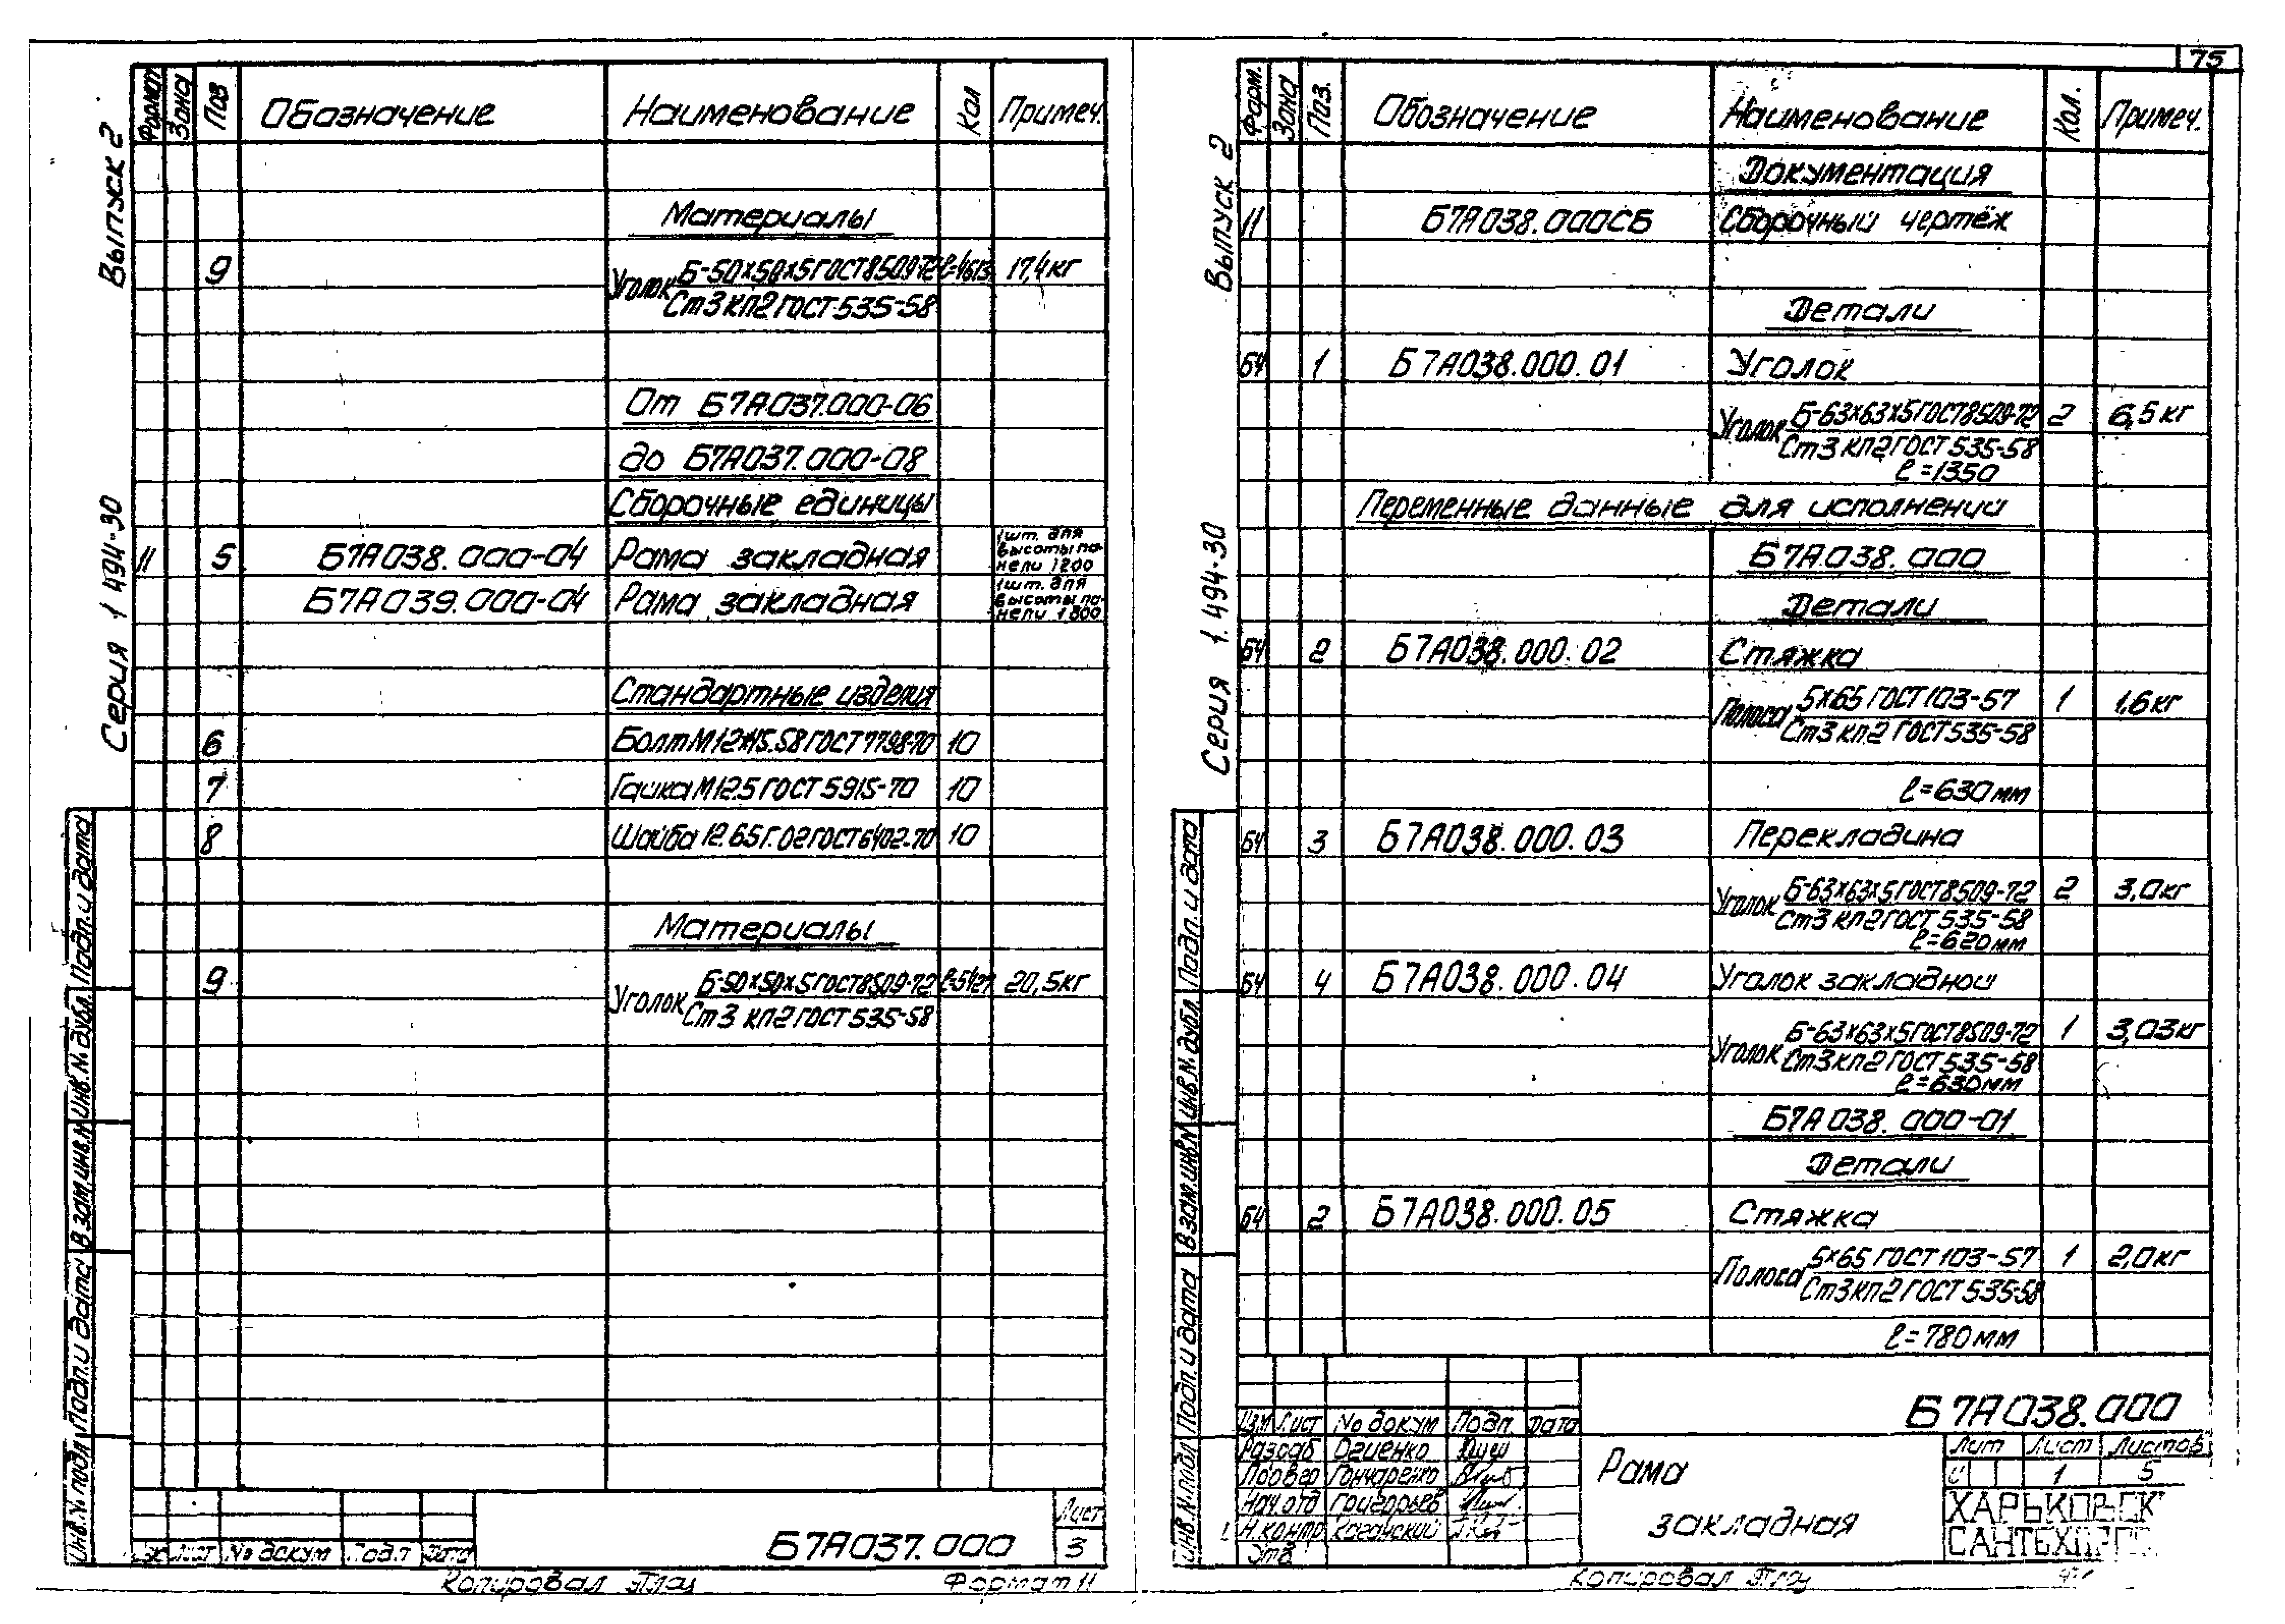 75
Выпуск 2
Серия 1 494-30
Формат Зона Поз Обозначение Наименование Кол Примеч.
Материалы
9 Уголок Б-50×50×5 ГОСТ 8509-72 ℓ=4613 17,4кг
Ст3 кп2 ГОСТ 535-58
От Б7А037.000-06
до Б7А037.000-08
Сборочные единицы
11 5 Б7А038.000-04 Рама закладная 1шт. для высоты панели 1200
Б7А039.000-04 Рама закладная 1шт. для высоты панели 1800
Стандартные изделия
6 Болт М12×45.58 ГОСТ 7798-70 10
7 Гайка М12.5 ГОСТ 5915-70 10
8 Шайба 12.65Г.02 ГОСТ 6402-70 10
Материалы
9 Уголок Б-50×50×5 ГОСТ 8509-72 ℓ=5427 20,5кг
Ст3 кп2 ГОСТ 535-58
Инв.№ подл. Подп. и дата Взам инв.№ Инв.№ дубл. Подп. и дата
Лист № докум Подп Дата
Б7А037.000
Лист
3
Копировал
Формат 11
Выпуск 2
Серия 1.494-30
Форм. Зона Поз. Обозначение Наименование Кол. Примеч.
Документация
11 Б7А038.000СБ Сборочный чертёж
Детали
БЧ 1 Б7А038.000.01 Уголок
Уголок Б-63×63×5 ГОСТ 8509-72 2 6,5кг
Ст3 кп2 ГОСТ 535-58
ℓ=1350
Переменные данные для исполнений
Б7А.038.000
Детали
БЧ 2 Б7А038.000.02 Стяжка
Полоса 5×65 ГОСТ 103-57 1 1,6кг
Ст3 кп2 ГОСТ 535-58
ℓ=630мм
БЧ 3 Б7А038.000.03 Перекладина
Уголок Б-63×63×5 ГОСТ 8509-72 2 3,0кг
Ст3 кп2 ГОСТ 535-58
ℓ=620мм
БЧ 4 Б7А038.000.04 Уголок закладной
Уголок Б-63×63×5 ГОСТ 8509-72 1 3,03кг
Ст3 кп2 ГОСТ 535-58
ℓ=630мм
Б7А038.000-01
Детали
БЧ 2 Б7А038.000.05 Стяжка
Полоса 5×65 ГОСТ 103-57 1 2,0кг
Ст3 кп2 ГОСТ 535-58
ℓ=780мм
Инв.№ подл Подп. и дата Взам.инв.№ Инв.№ дубл. Подп. и дата
Изм Лист № докум Подп. Дата
Разраб Огиенко
Провер Гончаренко
Нач.отд Григорьев
Н.контр Каганский
Утв
Б7А038.000
Рама
закладная
Лит Лист Листов
1 5
ХАРЬКОВСК
САНТЕХПРО
Копировал